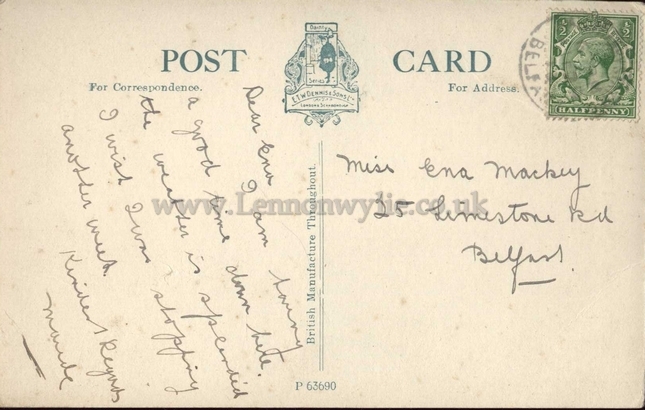 POST CARD
For Correspondence.
For Address.
Dainty
Series
E.T.W. DENNIS & SONS LTD
LONDON & SCARBOROUGH
Dear Ena
I am having
a good time down here.
the weather is splendid
I wish I was stopping
another week.
Kindest Regards
Maude
British Manufacture Throughout.
Miss Ena Mackey
25 Limestone Rd
Belfast.
P 63690
½ ½
HALFPENNY
BELF
www.Lennonwylie.co.uk